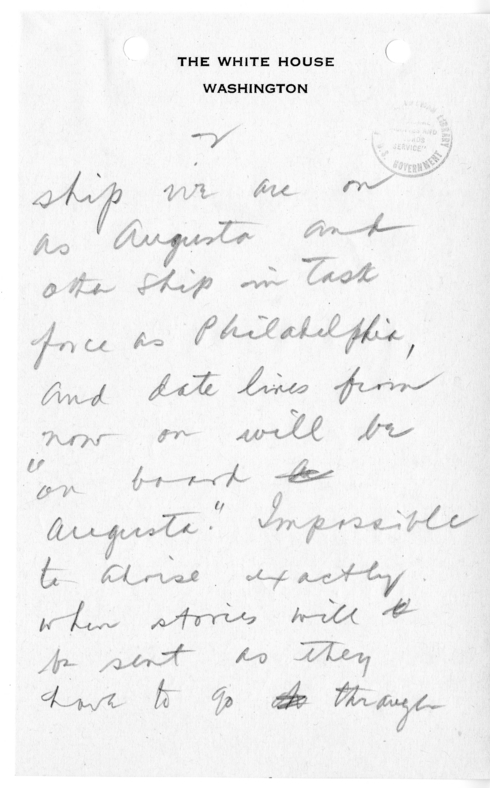 THE WHITE HOUSE
WASHINGTON
2
ship we are on
as Augusta and
other ship in task
force as Philadelphia,
and date lines from
now on will be
"on board
Augusta." Impossible
to advise exactly
when stories will
be sent as they
have to go through
LIBRARY
U.S. GOVERNMENT